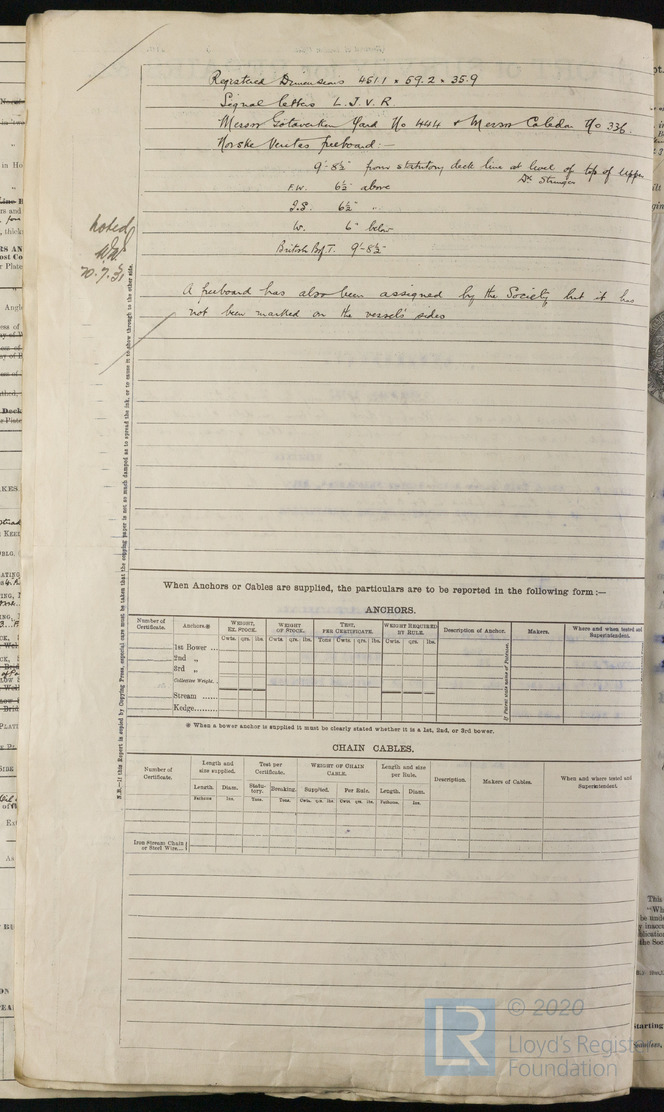 Registered Dimensions 461.1 × 59.2 × 35.9
Signal letters L.J.V.R
Messrs Götaverken Yard No 444 & Messrs Caledon No 336.
Norske Veritas freeboard:—
9'-8½" from statutory deck line at level of top of upper
Dk Stringer
F.W. 6½" above
I.S. 6½" "
W. 6" below
British Bd T. 9'-8½"
noted
20.7.31
A freeboard has also been assigned by the Society but it has
not been marked on the vessel's sides
N.B.—If this Report is copied by Copying Press, especial care must be taken that the copying paper is not so much damped as to spread the ink, or to cause it to show through to the other side.
When Anchors or Cables are supplied, the particulars are to be reported in the following form:—
ANCHORS.
Number of Certificate. Anchors.* WEIGHT, EX. STOCK. WEIGHT OF STOCK. TEST, PER CERTIFICATE. WEIGHT REQUIRED BY RULE. Description of Anchor. Makers. Where and when tested and Superintendent.
Cwts. qrs. lbs. Cwts. qrs. lbs. Tons Cwts. qrs. lbs. Cwts. qrs. lbs.
1st Bower ...
2nd "
3rd "
Collective Weight.
Stream ......
Kedge.........
If Patent state name of Patentee.
* When a bower anchor is supplied it must be clearly stated whether it is a 1st, 2nd, or 3rd bower.
CHAIN CABLES.
Number of Certificate. Length and size supplied. Test per Certificate. WEIGHT OF CHAIN CABLE. Length and size per Rule. Description. Makers of Cables. When and where tested and Superintendent.
Length. Diam. Statutory. Breaking. Supplied. Per Rule. Length. Diam.
Fathoms Ins. Tons. Tons. Cwts. qrs. lbs Cwts. qrs. lbs. Fathoms. Ins.
Iron Stream Chain
or Steel Wire...
© 2020
LR
Lloyd's Register
Foundation